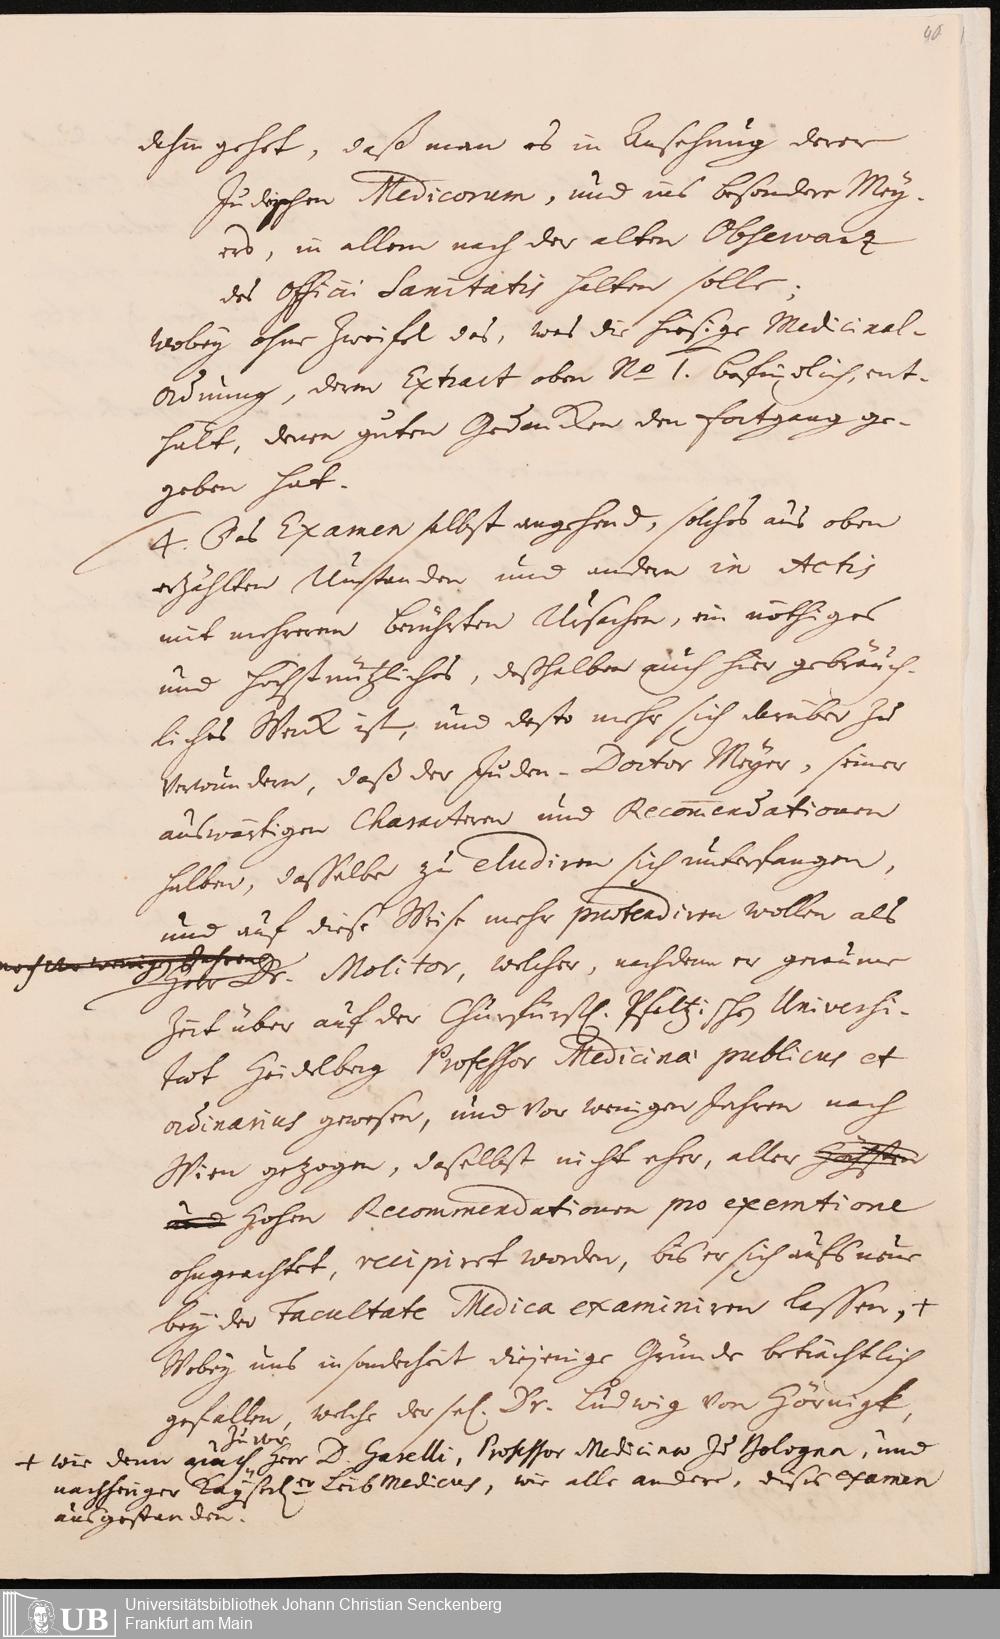 40
dahin gehet, daß man es in Ansehung derer
Jüdischen Medicorum, und ins besondere Mey-
ers, in allem nach der alten Observanz
des Officii Sanitatis halten solle;
wobey ohne Zweifel das, was die hiesige Medicinal-
Ordnung, deren Extract oben No 1. befindlich, ent-
hält, denen guten Gedancken den Fortgang ge-
geben hat.
4. Das Examen selbst angehend, solches aus oben
erzählten Umständen und andern in Actis
mit mehrerem berührten Ursachen, ein nöthiges
und höchstnützliches, deßhalben auch hier gebräuch-
liches Werck ist, und desto mehr sich darüber zu
verwundern, daß der Juden-Doctor Meyer, seiner
auswärtigen Characteren und Recom̅endationen
halber, dasselbe zu eludiren sich unterfangen,
und auf diese Weise mehr praetendiren wollen als
Herr Dr. Molitor, welcher, nachdem er geraume
Zeit über auf der Churfürstl. Pfältzischen Universi-
taet Heidelberg Professor Medicinae publicus et
ordinarius gewesen, und vor wenigen Jahren nach
Wien gezogen, daselbst nicht eher, aller höchsten
und hohen Recommendationen pro exemtione
ohngeachtet, recipirt worden, bis er sich aufs neue
bey der Facultate Medica examiniren lassen, +
Wobey uns insonderheit diejenige Gründe beträchtlich
gefallen, welche der sel. Dr. Ludwig von Hörnigk,
+ wie denn auch zuvor Herr D. Garelli, Professor Medicinae zu Bologna, und
nachheriger Kayserl.er Leib Medicus, wie alle andere, dieses examen
ausgestanden.
UB Universitätsbibliothek Johann Christian Senckenberg
Frankfurt am Main